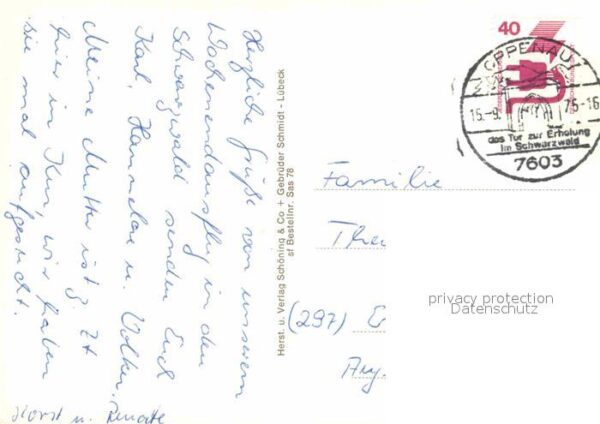 Herzliche Grüße von unserem
Wochenendausflug in den
Schwarzwald senden Euch
Karl, Hannelore u. Volker.
Meine Mutter ist z. Zt
hier in Kur, wir haben
sie mal aufgesucht.
Horst u. Renate
Herst. u. Verlag Schöning & Co + Gebrüder Schmidt - Lübeck
sf Bestellnr. Sas 78
40
OPPENAU
15.-9. 75-16
das Tor zur Erholung
im Schwarzwald
7603
Familie
The
(297) E
privacy protection
Datenschutz